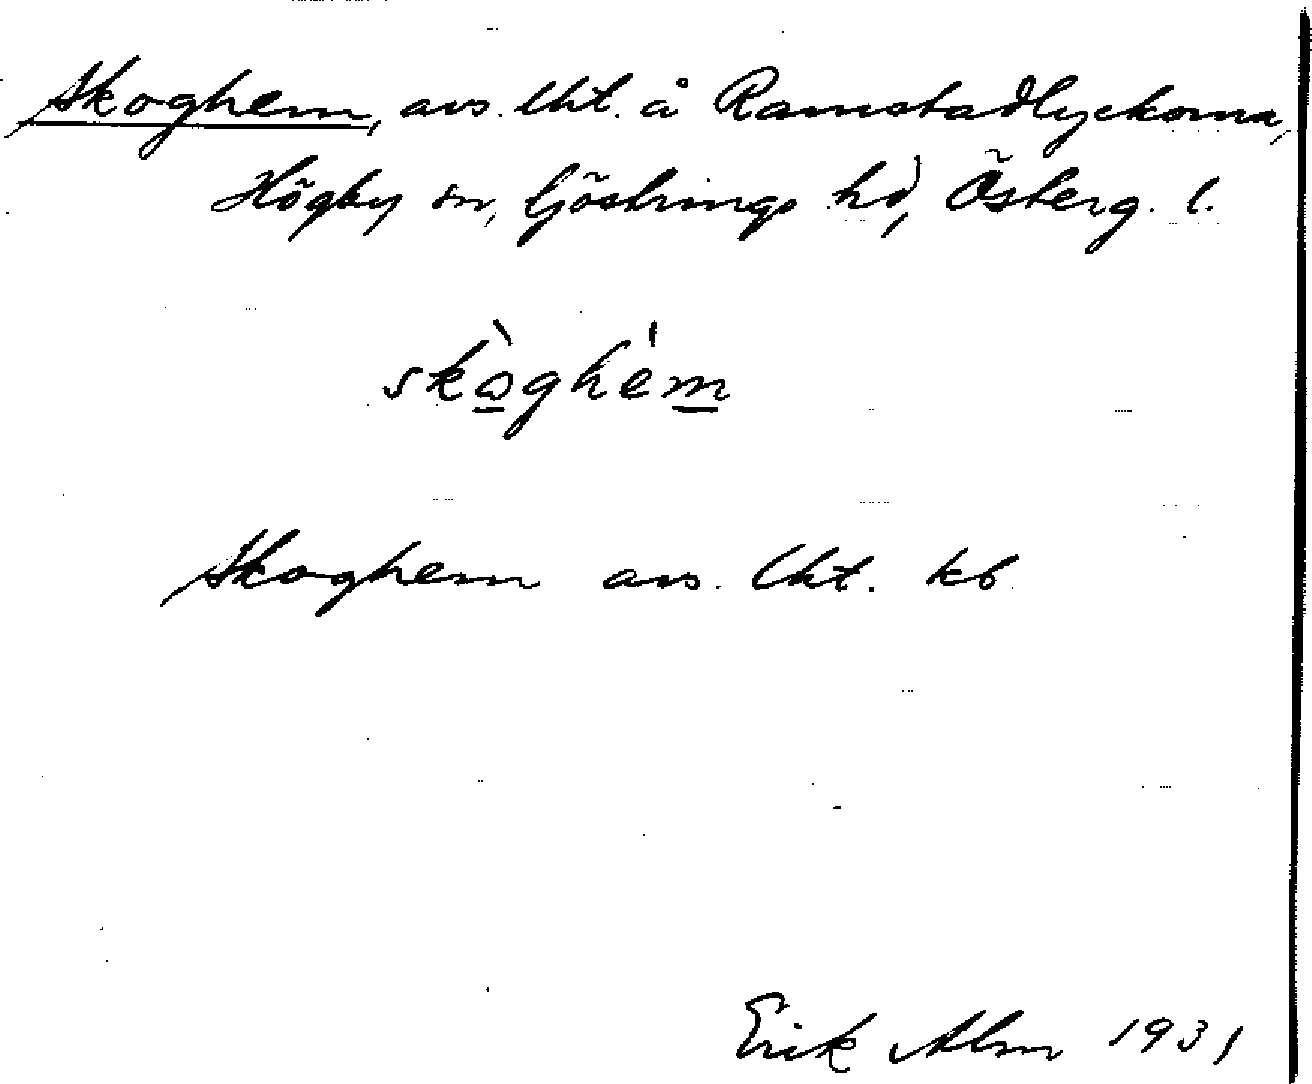 Skoghem, avs. lht. å Ramstadlyckorna,
Högby sn, Göstrings hd, Österg. l.
skò̲ghém̲
Skoghem avs. lht. kb
Erik Alm 1931